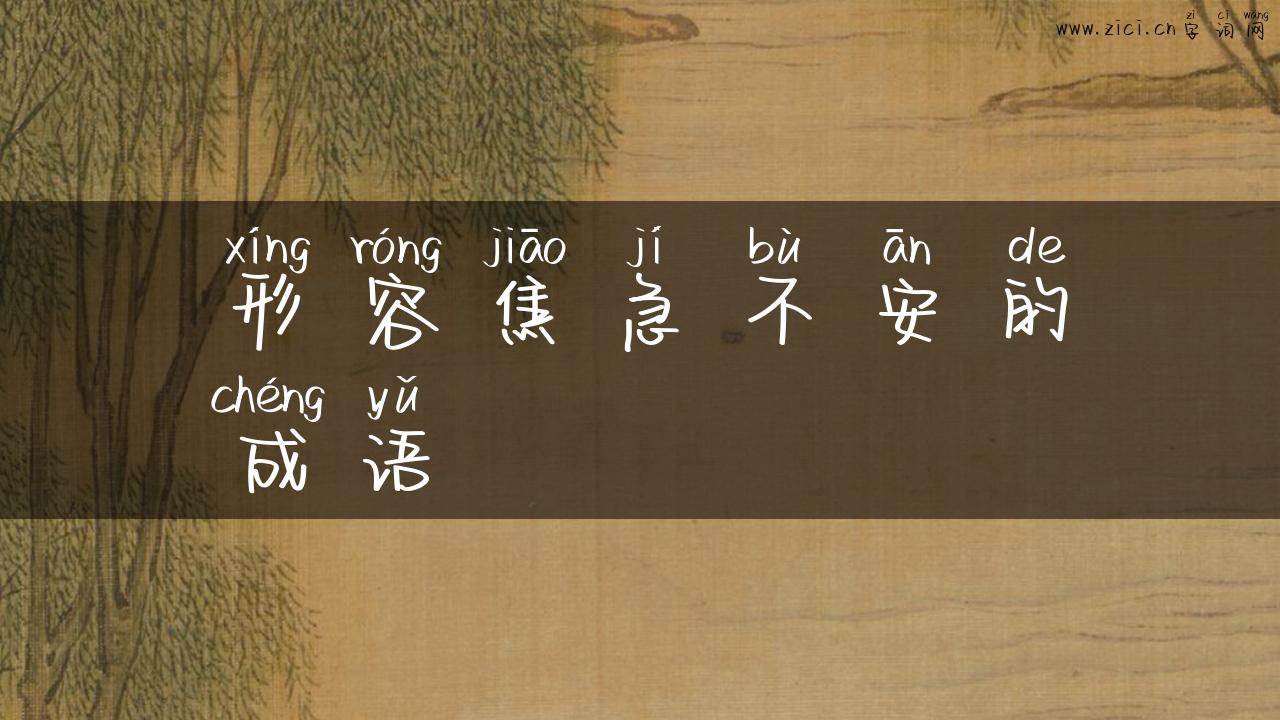 zì cí wǎng
www.zici.cn 字 词 网
xíng róng jiāo jí bù ān de
形 容 焦 急 不 安 的
chéng yǔ
成 语